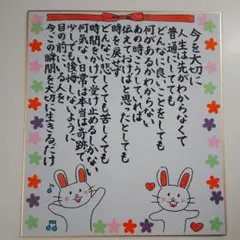 今を大切に
人生は先がわからなくて
普通にしてても
どんなに良いことをしても
何があるかわからない
あの時こうしていれば
伝えていればと思ったとしても
時を戻せず
どんなに悲しくても苦しくても
時間をかけて受け止めるしかない
何気ない日常は本当は奇跡で
少しでも後悔しないように
目の前にいる人を
今この瞬間を大切に生きるだけ